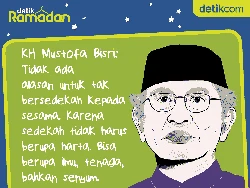 detik
Ramadan
detikcom
KH Mustofa Bisri:
Tidak ada
alasan untuk tak
bersedekah kepada
sesama. Karena
sedekah tidak harus
berupa harta. Bisa
berupa ilmu, tenaga,
bahkan senyum.